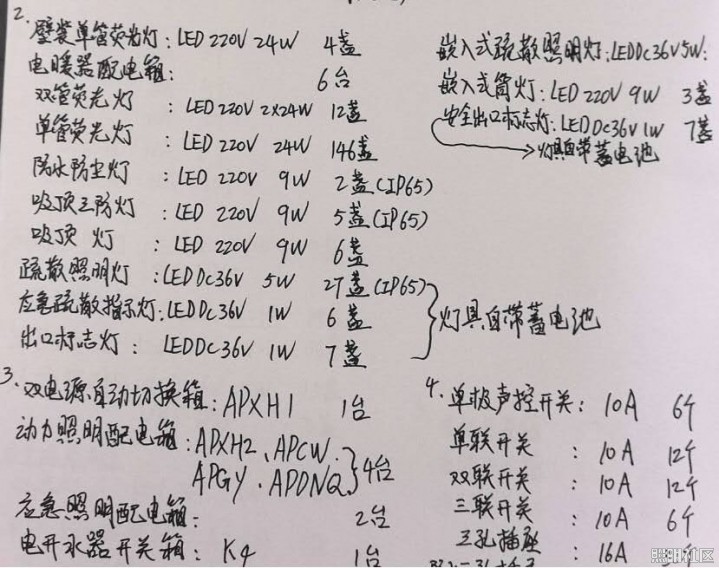 2. 壁装单管荧光灯: LED 220V 24W 4盏
电暖器配电箱: 6台
双管荧光灯: LED 220V 2x24W 12盏
单管荧光灯: LED 220V 24W 146盏
防水防尘灯: LED 220V 9W 2盏(IP65)
吸顶三防灯: LED 220V 9W 5盏(IP65)
吸顶灯: LED 220V 9W 6盏
疏散照明灯: LED DC36V 5W 27盏(IP65)
应急疏散指示灯: LED DC36V 1W 6盏
出口标志灯: LED DC36V 1W 7盏
灯具自带蓄电池
嵌入式疏散照明灯: LED DC36V 5W:
嵌入式筒灯: LED 220V 9W 3盏
安全出口标志灯: LED DC36V 1W 7盏
灯具自带蓄电池
3. 双电源自动切换箱: APXH1 1台
动力照明配电箱: APXH2、APCW、
APGY、APDNQ 4台
应急照明配电箱: 2台
电开水器开关箱: K4 1台
4. 单极声控开关: 10A 6个
单联开关: 10A 12个
双联开关: 10A 12个
三联开关: 10A 6个
三孔插座: 16A
照明社区